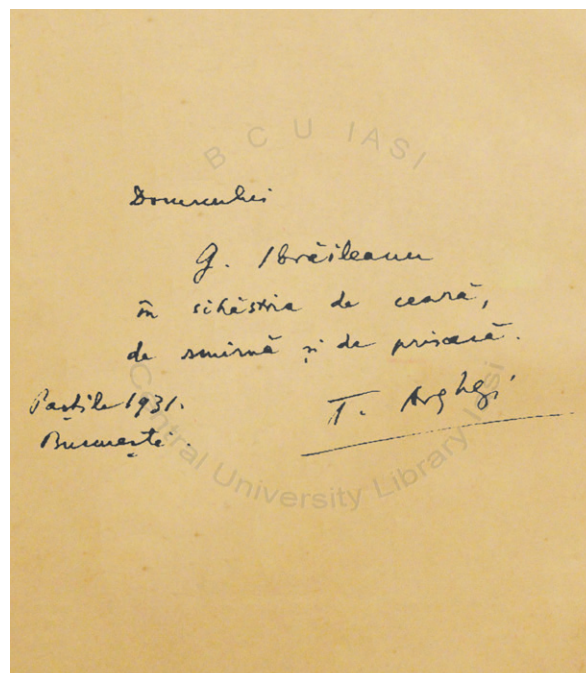 B C U IASI
Domnului
G. Ibrăileanu
în sihăstria de ceară,
de smirnă și de prisacă.
Paștile 1931.
București.
T. Arghezi
Central University Library Iasi